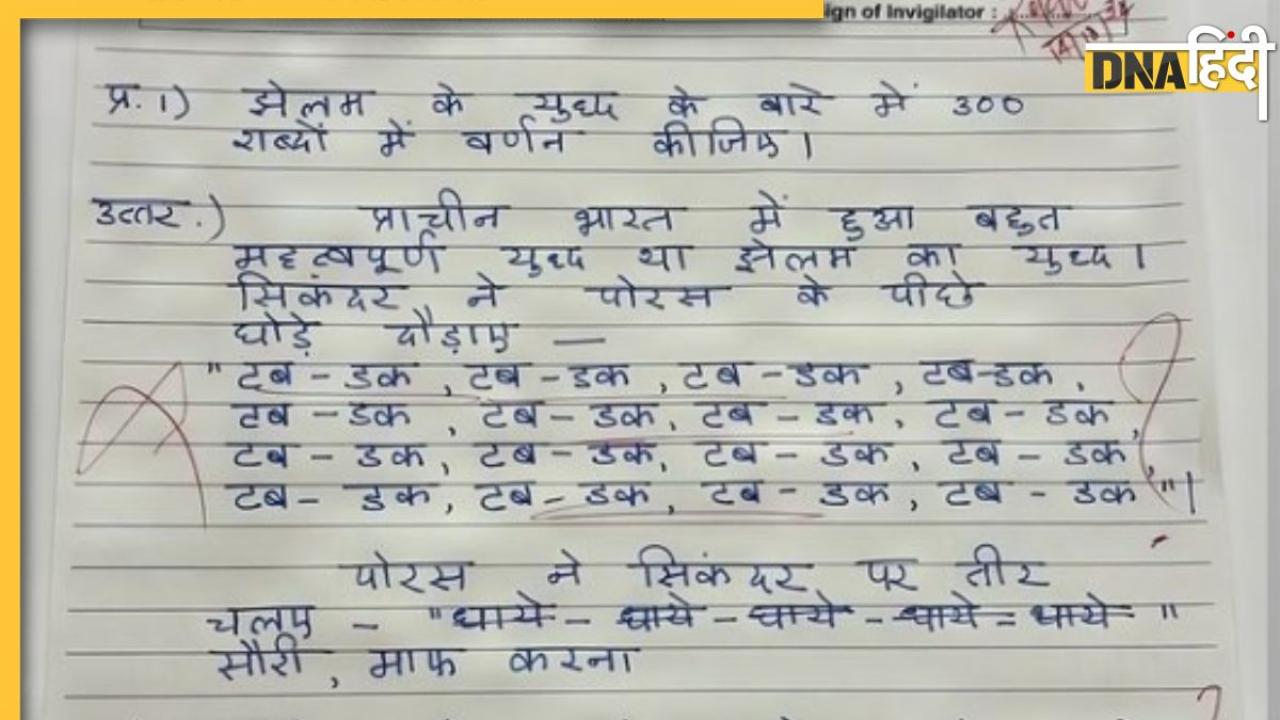 ign of Invigilator :
DNAहिंदी
प्र. 1) झेलम के युध्द के बारे में 300
शब्दों में वर्णन कीजिए।
उत्तर.) प्राचीन भारत में हुआ बहुत
महत्वपूर्ण युध्द था झेलम का युध्द।
सिकंदर ने पोरस के पीछे
घोड़े दौड़ाए —
" टब - डक , टब - डक , टब - डक , टब-डक ,
टब - डक , टब - डक, टब - डक , टब - डक ,
टब - डक , टब - डक, टब - डक , टब - डक ,
टब - डक, टब - डक, टब - डक , टब - डक "।
पोरस ने सिकंदर पर तीर
चलाए - "धाये - धाये - धाये - धाये = धाये "
सौरी , माफ करना